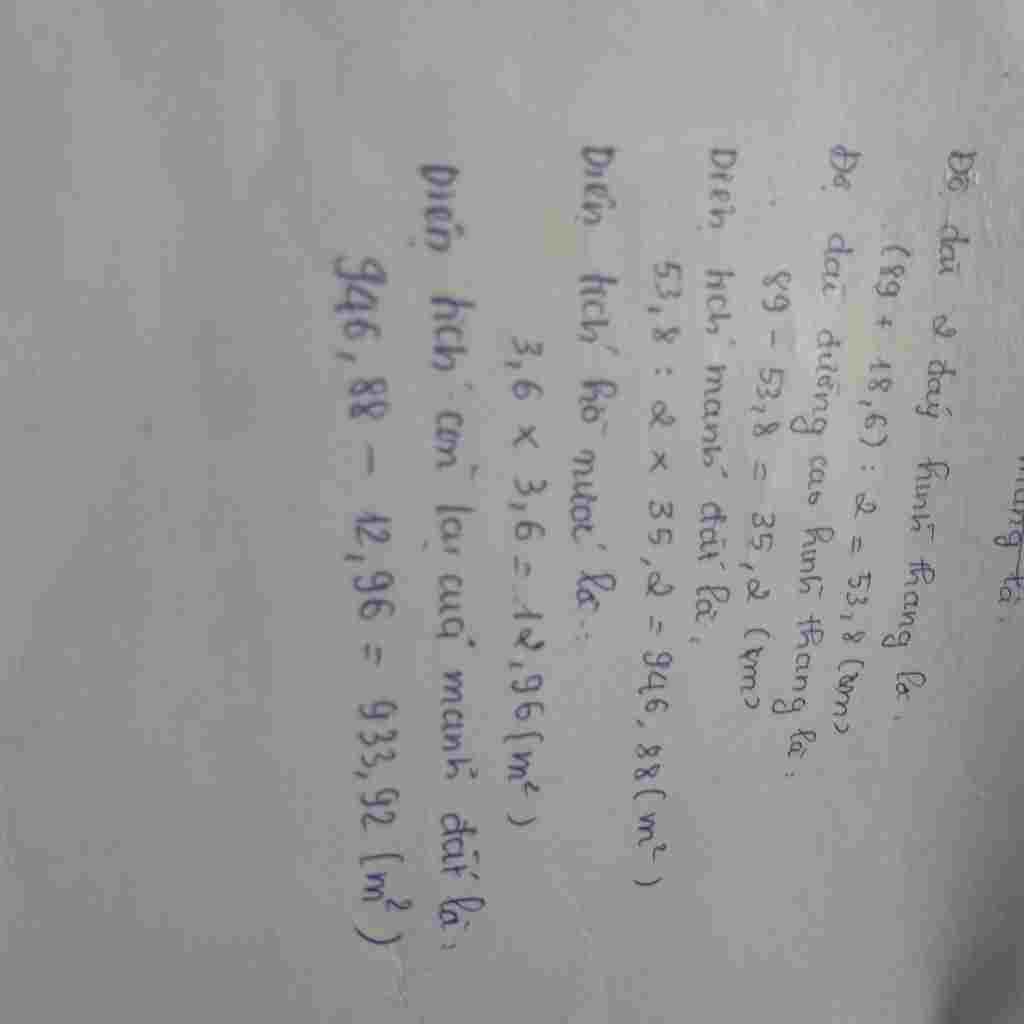 Độ dài 2 đáy hình thang là:
(89 + 18,6) : 2 = 53,8 (m)
Độ dài đường cao hình thang là:
89 - 53,8 = 35,2 (m)
Diện tích mảnh đất là:
53,8 : 2 x 35,2 = 946,88 (m²)
Diện tích hồ nước là:
3,6 x 3,6 = 12,96 (m²)
Diện tích còn lại của mảnh đất là:
946,88 - 12,96 = 933,92 (m²)